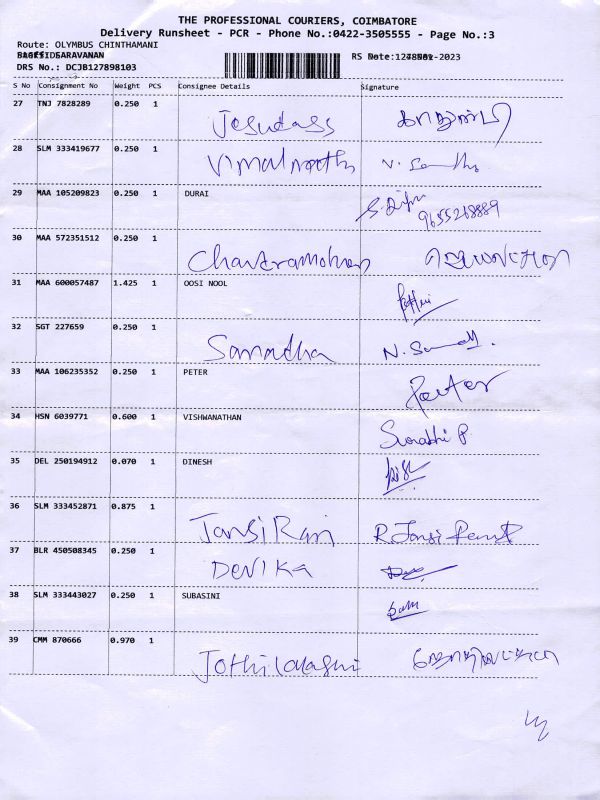 THE PROFESSIONAL COURIERS, COIMBATORE
Delivery Runsheet - PCR - Phone No.:0422-3505555 - Page No.:3
Route: OLYMBUS CHINTHAMANI
SARAVANAN RS Date: -2023
DRS No.: DCJB127898103
S No Consignment No Weight PCS Consignee Details Signature
27 TNJ 7828289 0.250 1
Jesudass
28 SLM 333419677 0.250 1
Vimalnath
29 MAA 105209823 0.250 1 DURAI
9655268889
30 MAA 572351512 0.250 1
Chandramohan
31 MAA 600057487 1.425 1 OOSI NOOL
32 SGT 227659 0.250 1
Sanradha N.
33 MAA 106235352 0.250 1 PETER
Peter
34 HSN 6039771 0.600 1 VISHWANATHAN
Surabhi P
35 DEL 250194912 0.070 1 DINESH
36 SLM 333452871 0.875 1
Jansi Rani R. Jansi Rani
37 BLR 450508345 0.250 1
DeviKa
38 SLM 333443027 0.250 1 SUBASINI
39 CMM 870666 0.970 1